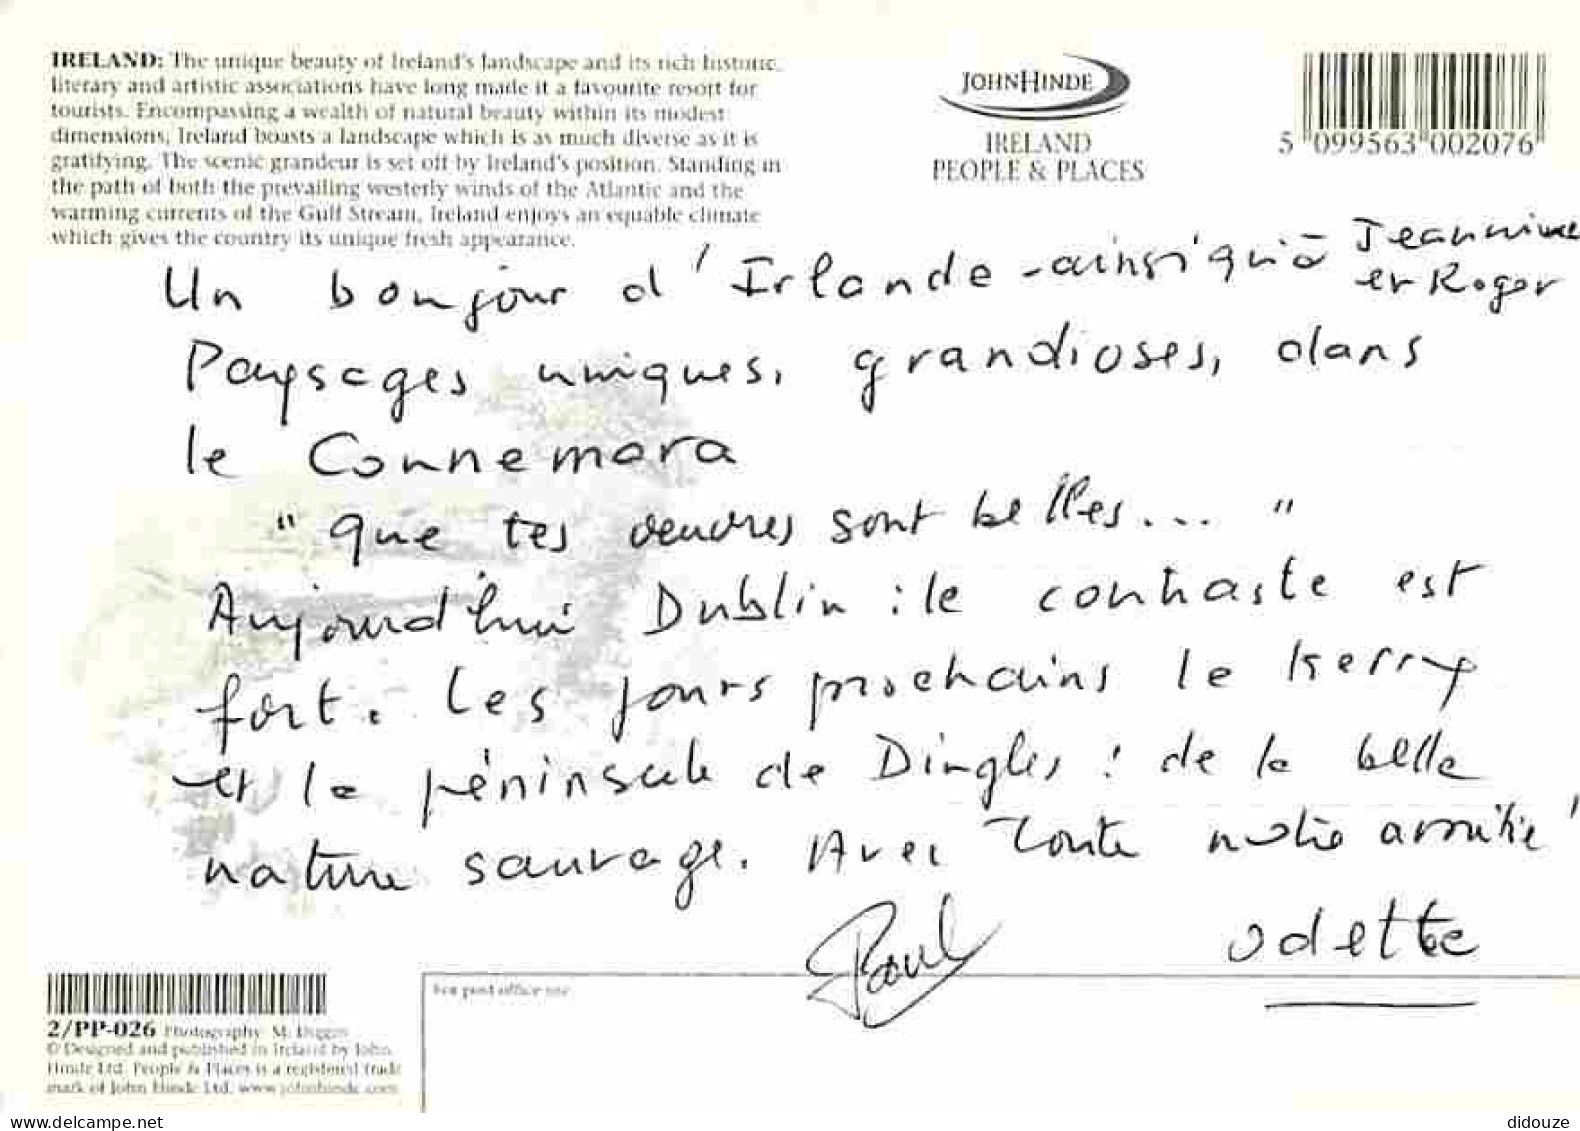 IRELAND: The unique beauty of Ireland's landscape and its rich historic,
literary and artistic associations have long made it a favourite resort for
tourists. Encompassing a wealth of natural beauty within its modest
dimensions, Ireland boasts a landscape which is as much diverse as it is
gratifying. The scenic grandeur is set off by Ireland's position. Standing in
the path of both the prevailing westerly winds of the Atlantic and the
warming currents of the Gulf Stream, Ireland enjoys an equable climate
which gives the country its unique fresh appearance.
JOHNHINDE
IRELAND
PEOPLE & PLACES
5 099563 002076
Un bonjour d'Irlande - ainsi qu'à Jeannine
et Roger
Paysages uniques, grandioses, dans
le Connemara
"que tes sont belles... "
Aujourd'hui Dublin : le contraste est
fort. Les jours prochains le Kerry
et la péninsule de Dingles : de la belle
nature sauvage. Avec toute notre amitié
Paul
Odette
For post office use
2/PP-026 Photography: M. Diggin
© Designed and published in Ireland by John
Hinde Ltd. People & Places is a registered trade
mark of John Hinde Ltd. www.johnhinde.com
www.delcampe.net
didouze